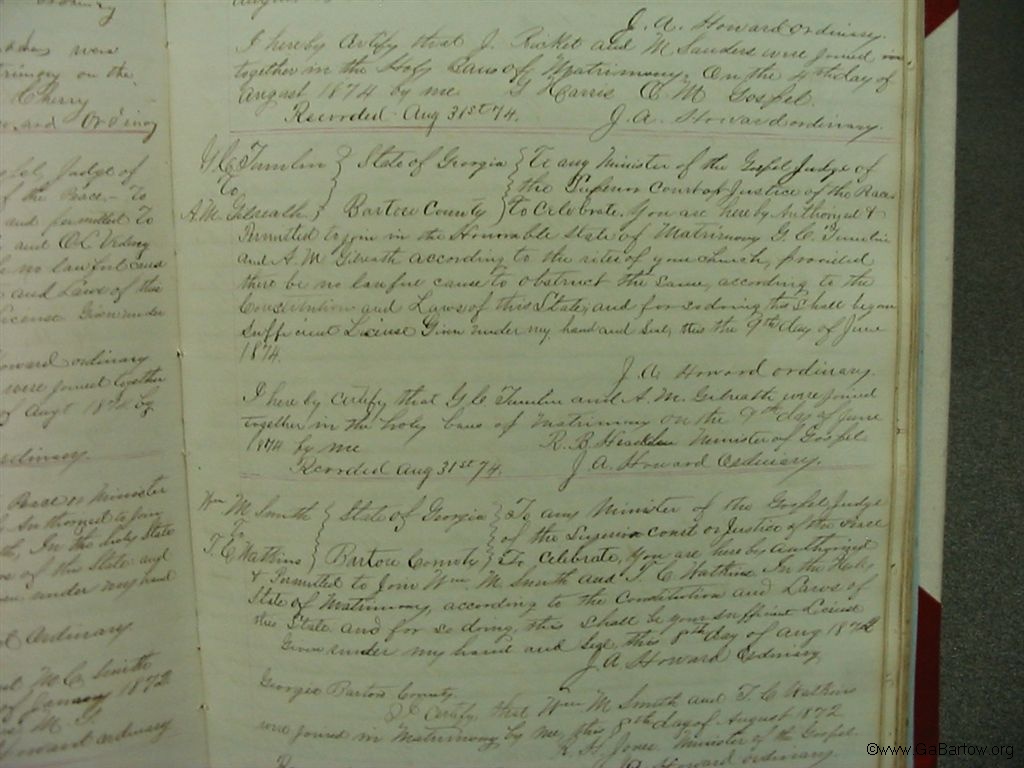 were
on the
Cherry
Ordinary
Judge of
of the Peace - To
and permitted to
and
no lawful cause
and Laws of this
License Given under
Howard ordinary
were joined together
of Augt 1872 by
ordinary
Peace or Minister
Authorized to join
In the holy State
of the State and
under my hand
Ordinary
M. C. Smith
of January 1872
Howard ordinary
J. A. Howard ordinary.
I hereby Certify that J. Ricket and M Sanders were joined in
together in the Holy Banes of Matrimony. On the 4th day of
August 1874 by me G Harris O. M Gospel.
Recorded Aug 31st 74. J. A. Howard ordinary.
G C Tumlin } State of Georgia } To any Minister of the Gospel Judge of
To the Superior Court or Justice of the Peace
A. M. Gilreath } Bartow County } to Celebrate. You are hereby Authorized &
Permitted to join in the Honorable state of Matrimony G. C. Tumlin
and A. M Gilreath according to the rites of your Church, provided
there be no lawful cause to obstruct the same, according to the
Constitution and Laws of this State, and for so doing this shall be your
sufficient License Given under my hand and Seal, this the 9th day of June
1874.
J. A Howard ordinary.
I here by Certify that G C Tumlin and A. M. Gilreath were joined
together in the holy bans of Matrimony on the 9th day of June
1874 by me R. B. Minister of Gospel
Recorded Aug 31st 74. J A. Howard Ordinary.
Wm M Smith } State of Georgia } To any Minister of the Gospel, Judge
To of the Superior Court or Justice of the Peace
T. C Watkins } Bartow County } To Celebrate, You are here by authorized
& Permitted to Join Wm M Smith and T. C. Watkins In the Holy
State of Matrimony, according to the Constitution and Laws of
this State and for so doing, this shall be your sufficient License
Given under my hand and Seal, this 8th day of Aug 1872
J. A Howard Ordinary
Georgia Bartow County.
I certify, that Wm M Smith and T. C Watkins
were joined in Matrimony by me, this 8th day of August 1872
R. H Jones Minister of the Gospel.
Howard ordinary.
©www.GaBartow.org